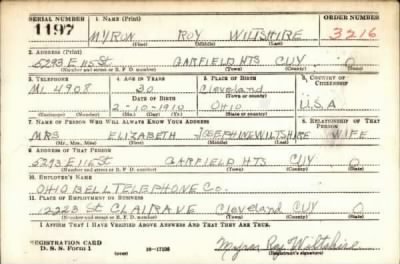 SERIAL NUMBER 1. NAME (Print) ORDER NUMBER
1197 MYRON ROY WILTSHIRE 3216
(First) (Middle) (Last)
2. ADDRESS (Print)
5293 E 115 ST GARFIELD HTS CUY O
(Number and street or R. F. D. number) (Town) (County) (State)
3. TELEPHONE 4. AGE IN YEARS 5. PLACE OF BIRTH 6. COUNTRY OF CITIZENSHIP
ML 4908 30 Cleveland
DATE OF BIRTH (Town or county)
2-10-1910 OHIO U.S.A
(Mo.) (Day) (Yr.) (State or country)
7. NAME OF PERSON WHO WILL ALWAYS KNOW YOUR ADDRESS 8. RELATIONSHIP OF THAT PERSON
MRS ELIZABETH JOSEPHINE WILTSHIRE WIFE
(Mr., Mrs., Miss) (First) (Middle) (Last)
9. ADDRESS OF THAT PERSON
5293 E 115 ST GARFIELD HTS CUY O
(Number and street or R. F. D. number) (Town) (County) (State)
10. EMPLOYER'S NAME
OHIO BELL TELEPHONE Co.
11. PLACE OF EMPLOYMENT OR BUSINESS
12223 St CLAIR AVE Cleveland CUY O
(Number and street or R. F. D. number) (Town) (County) (State)
I AFFIRM THAT I HAVE VERIFIED ABOVE ANSWERS AND THAT THEY ARE TRUE.
REGISTRATION CARD
D. S. S. Form 1 (over) Myron Roy Wiltshire
(Registrant's signature)